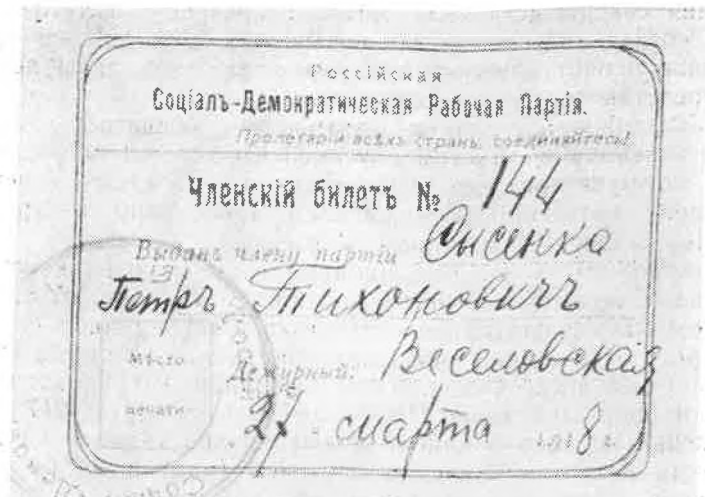 Россійская
Соціалъ-Демократическая Рабочая Партія.
Пролетаріи всѣхъ странъ, соединяйтесь!
Членскій билетъ № 144
Выданъ члену партіи Сысенко
Петръ Тихоновичъ
Мѣсто
печати
Дежурный: Веселовская
27 марта 1918